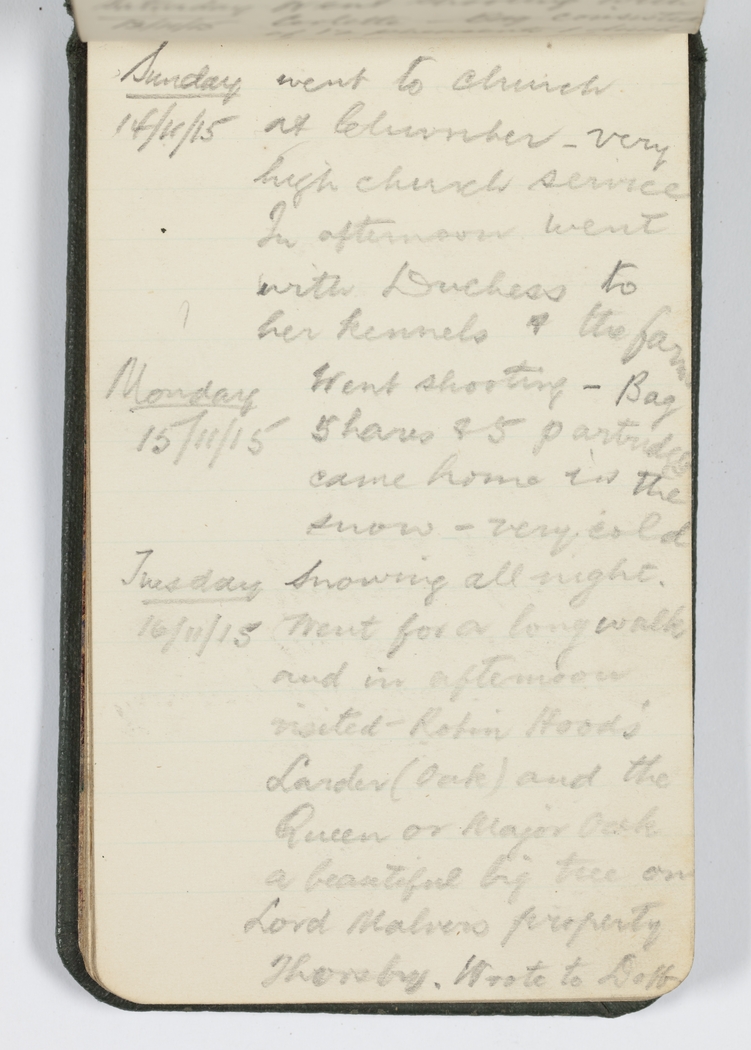 Saturday Went shooting with
Sunday went to church
14/11/15 at Clumber - very
high church service
In afternoon went
with Duchess to
her kennels & the farm
Monday Went shooting - Bag
15/11/15 5 hares & 5 partridges
came home in the
snow - very cold
Tuesday Snowing all night.
16/11/15 Went for a long walk
and in afternoon
visited Robin Hood's
Larder (Oak) and the
Queen or Major Oak
a beautiful big tree on
Lord Malvers property
Thoresby. Wrote to Dott